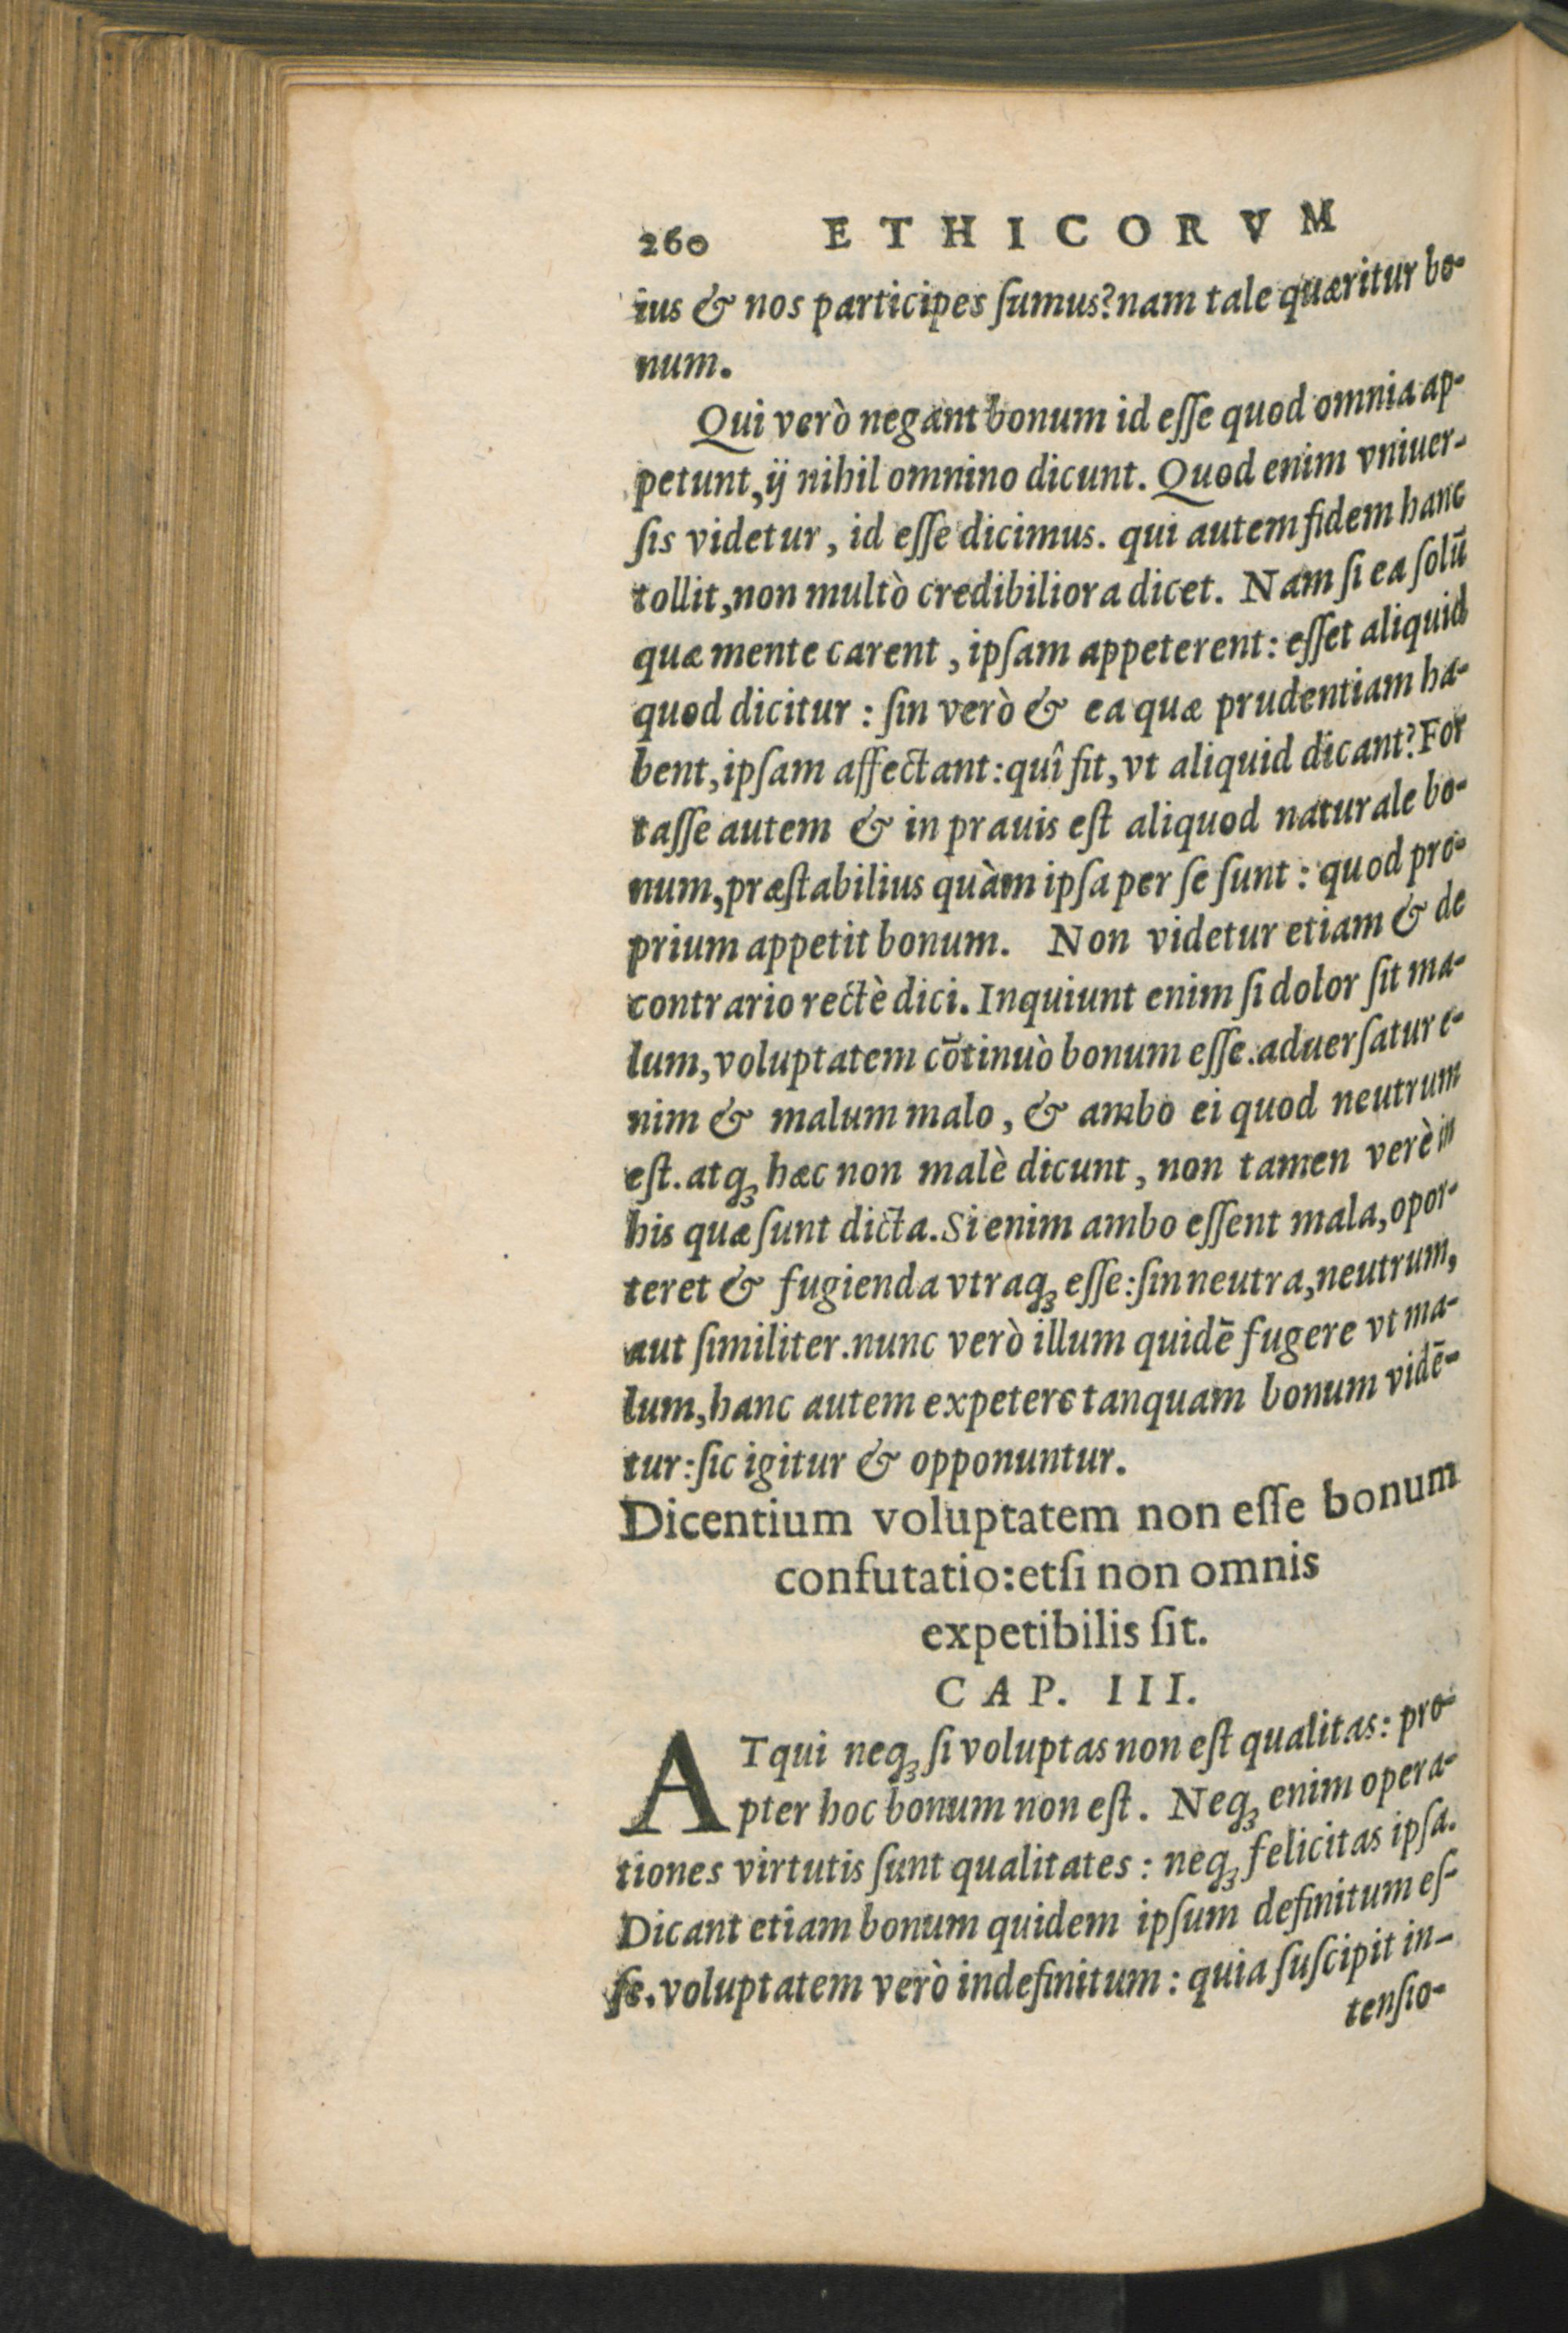 260 ETHICORVM
ius & nos participes ſumus? nam tale quæritur bo-
num.
Qui verò negant bonum id eſſe quod omnia ap-
petunt, ij nihil omnino dicunt. Quod enim vniuer-
ſis videtur, id eſſe dicimus. qui autem fidem hanc
tollit, non multò credibiliora dicet. Nam ſi ea ſolū
quæ mente carent, ipſam appeterent: eſſet aliquid
quod dicitur: ſin verò & ea quæ prudentiam ha-
bent, ipſam affectant: quî fit, vt aliquid dicant? For
taſſe autem & in prauis eſt aliquod naturale bo-
num, præſtabilius quàm ipſa per ſe ſunt: quod pro-
prium appetit bonum. Non videtur etiam & de
contrario rectè dici. Inquiunt enim ſi dolor ſit ma-
lum, voluptatem cōtinuò bonum eſſe. aduerſatur e-
nim & malum malo, & ambo ei quod neutrum
eſt. atqꝫ hæc non malè dicunt, non tamen verè in
his quæ ſunt dicta. Si enim ambo eſſent mala, opor-
teret & fugienda vtraqꝫ eſſe: ſin neutra, neutrum,
aut ſimiliter. nunc verò illum quidē fugere vt ma-
lum, hanc autem expetere tanquam bonum vidē-
tur: ſic igitur & opponuntur.
Dicentium voluptatem non eſſe bonum
confutatio: etſi non omnis
expetibilis ſit.
CAP. III.
ATqui neqꝫ ſi voluptas non eſt qualitas: pro-
pter hoc bonum non eſt. Neqꝫ enim opera-
tiones virtutis ſunt qualitates: neqꝫ felicitas ipſa.
Dicant etiam bonum quidem ipſum definitum eſ-
ſe. voluptatem verò indefinitum: quia ſuſcipit in-
tenſio-